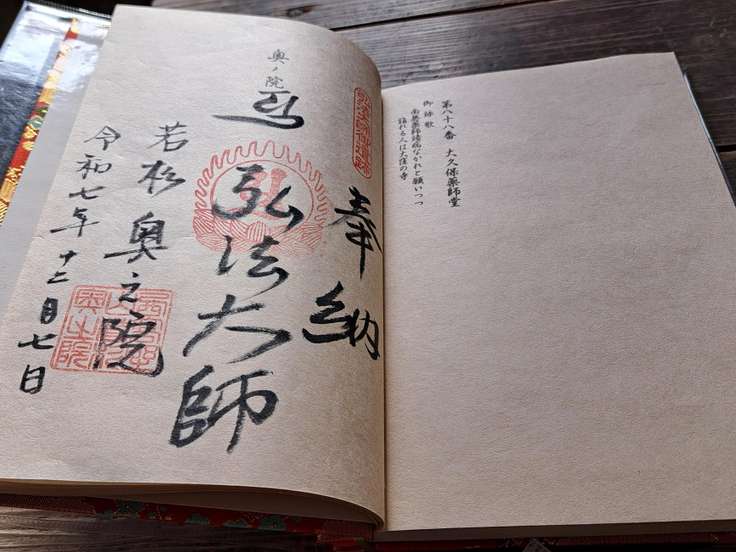 第八十八番 大久保薬師堂
御詠歌
南無薬師諸病なかれと願いつつ
詣れる人は大窪の寺
奉納
奥ノ院
弘法大師
弘
若杉奥之院
奥之院
令和七年十二月七日